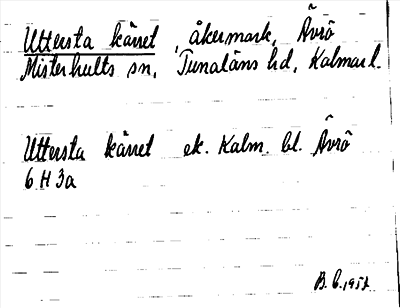 Uttersta kärret, åkermark, Ävrö
Misterhults sn, Tunaläns hd, Kalmar l.
Uttersta kärret ek. Kalm. bl. Ävrö
6 H 3a
B. C. 1957